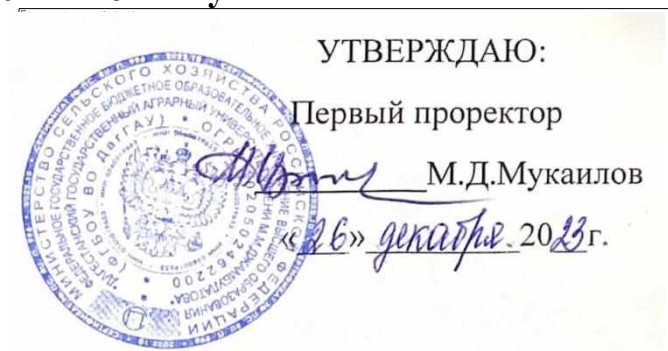 УТВЕРЖДАЮ:
Первый проректор
М.Д.Мукаилов
«26» декабря 2023г.
МИНИСТЕРСТВО СЕЛЬСКОГО ХОЗЯЙСТВА РОССИЙСКОЙ ФЕДЕРАЦИИ
ФЕДЕРАЛЬНОЕ ГОСУДАРСТВЕННОЕ БЮДЖЕТНОЕ ОБРАЗОВАТЕЛЬНОЕ УЧРЕЖДЕНИЕ ВЫСШЕГО ОБРАЗОВАНИЯ
"ДАГЕСТАНСКИЙ ГОСУДАРСТВЕННЫЙ АГРАРНЫЙ УНИВЕРСИТЕТ ИМЕНИ М.М.ДЖАМБУЛАТОВА"
(ФГБОУ ВО ДагГАУ)